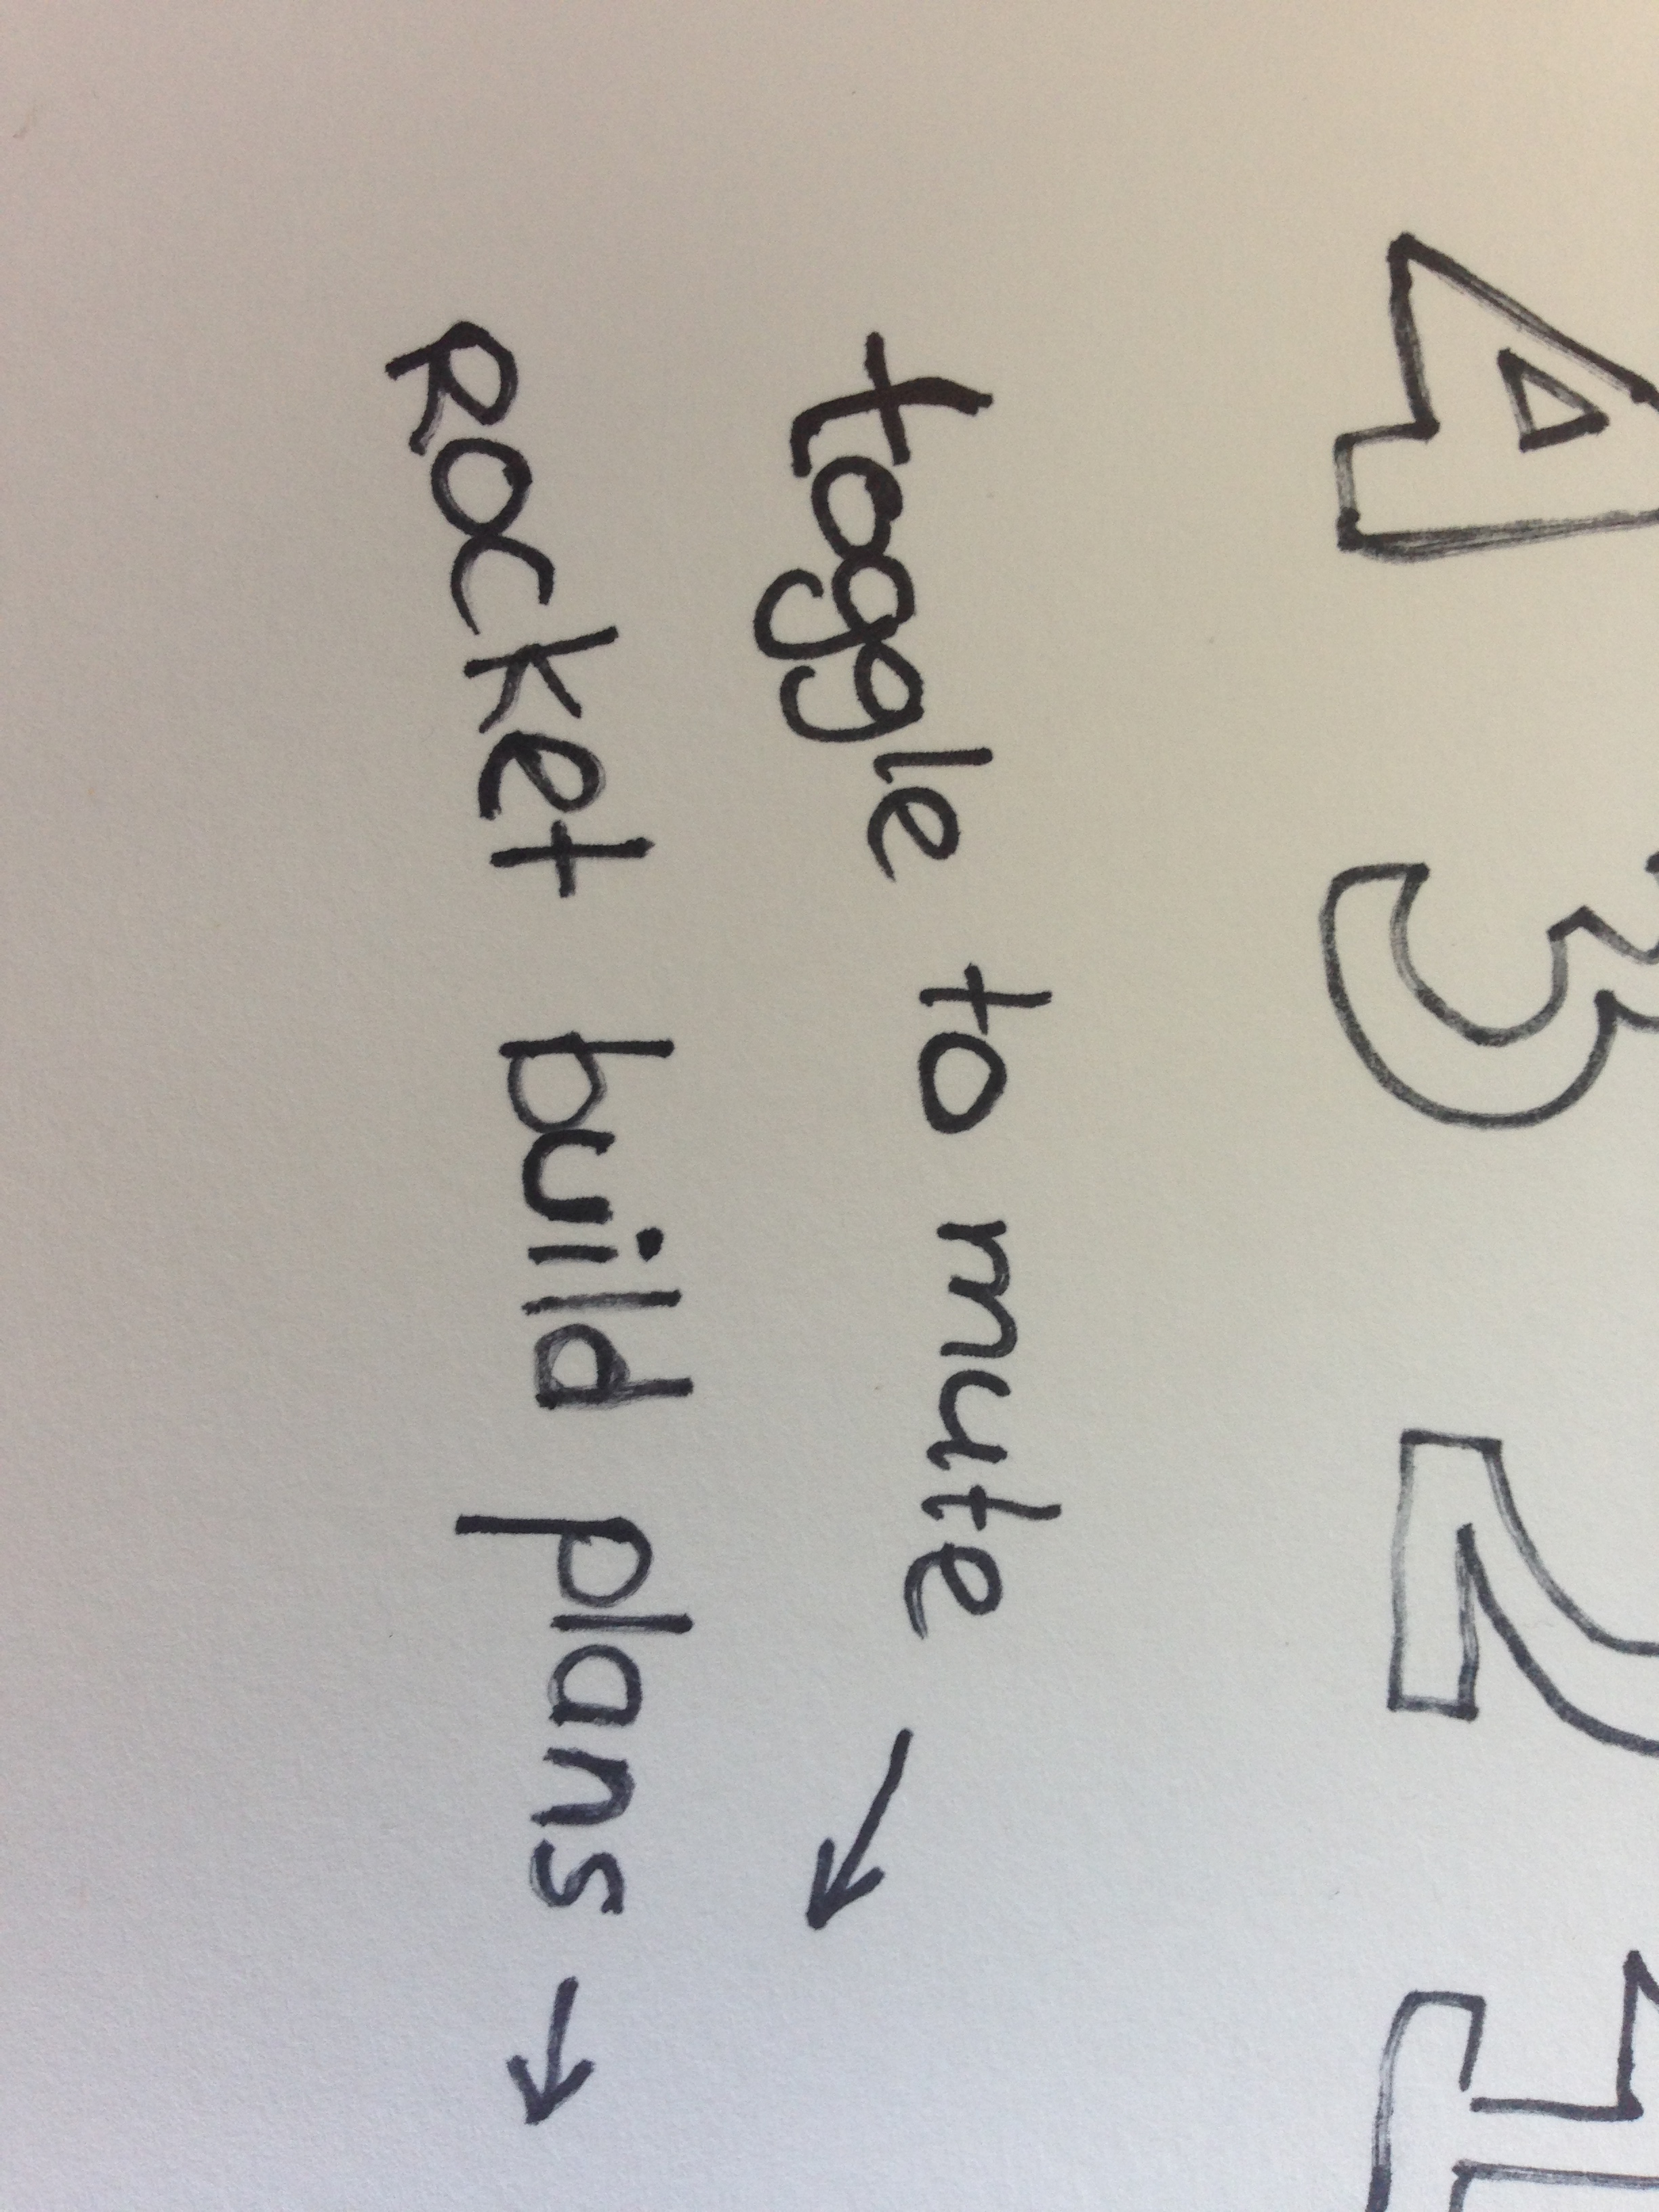 4 3 2 1
toggle to mute →
Rocket build plans →